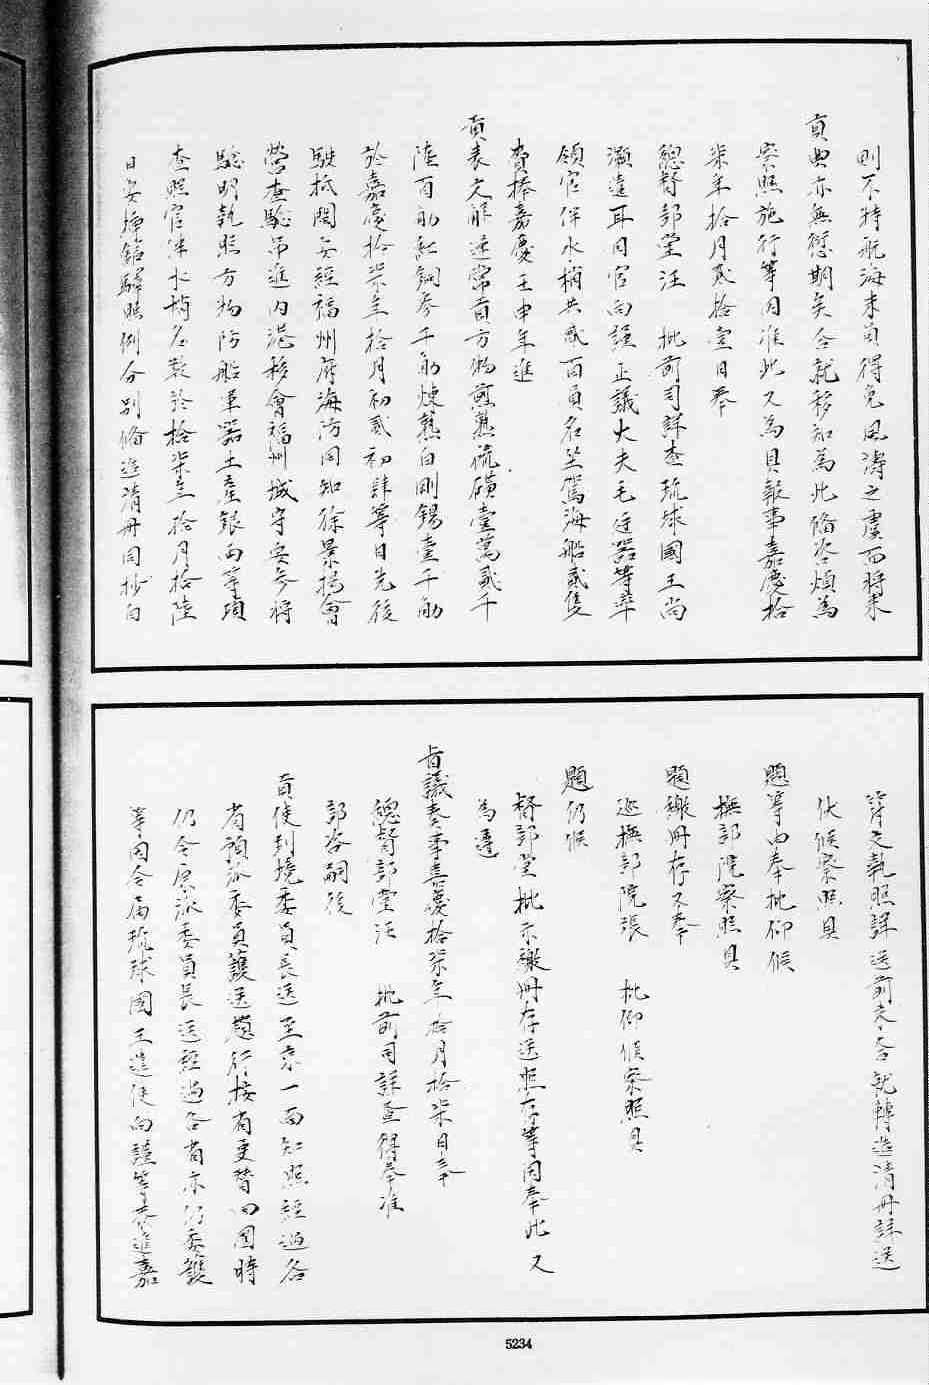 則不特航海末員得免風濤之虞而將来
貢典亦無愆期矣合就移知為此備咨煩為
察照施行等因准此又為具報事嘉慶拾
柒年拾月貳拾壹日奉
總督部堂汪　批前司詳查琉球國王尚
灝遣耳目官向謹正議大夫毛廷器等率
領官伴水梢共貳百員名坐駕海船貳隻
賫捧嘉慶壬申年進
貢表文解送常貢方物煎熟硫磺壹萬貳千
陸百觔紅銅參千觔煉熟白剛錫壹千觔
於嘉慶拾柒年拾月初貳初肆等日先後
駛抵閩安經福州府海防同知徐景揚會
營查驗吊進內港移會福州城守安參將
驗明執照方物防船軍器土產銀両等項
查照官伴水梢名數於拾柒年拾月拾陸
日安插館驛照例分别俻造清冊同抄白
符文執照詳送前来合就轉造清冊詳送
伏候察照具
題等由奉批仰候
撫部院察照具
題繳冊存又奉
巡撫部院張　批仰候察照具
題仍候
督部堂批示繳冊存送照存等因奉此又
為遵
旨議奏事嘉慶拾柒年拾月拾柒日奉
總督部堂汪　批前司詳查得奉准
部咨嗣後
貢使到境委員長送至京一面知照經過各
省預派委員護送趲行接有更替回國時
仍令原派委員長送經過各省亦仍委護
等因今屆琉球國王遣使向謹等恭進嘉
5234